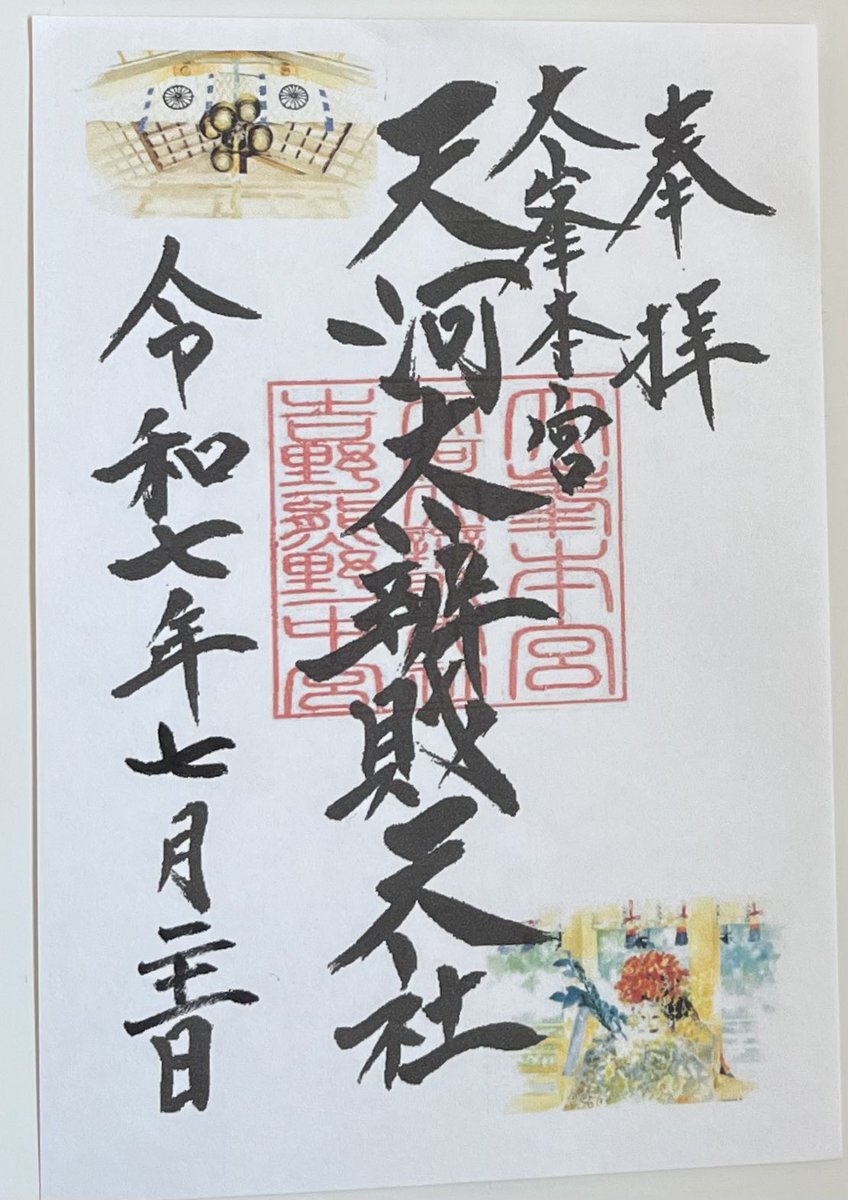 奉拝
大峯本宮
天河大辨財天社
令和七年七月二十日
大峯本宮
吉野熊野中宮